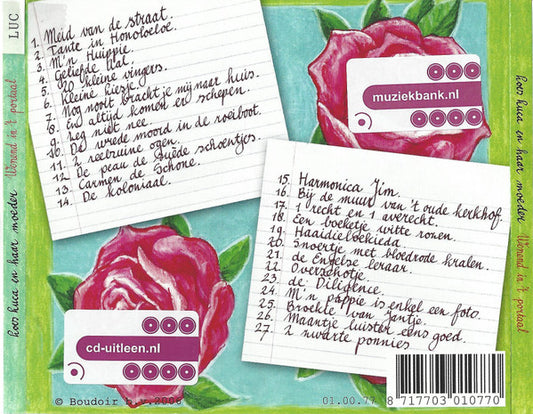 LUC
koos kuca en haar moeder Wenend in 't portaal
1. Meid van de straat.
2. Tante in Honoloeloe.
3. M'n Huippie.
4. Geliefde Hal.
5. 20 kleine vingers.
6. Kleine Kiesje.
7. Nog nooit bracht je mij naar huis.
8. En altijd komen er schepen.
9. Zeg niet nee.
10. De wrede moord in de roeiboot.
11. 2 reebruine ogen.
12. De peau de suède schoentjes.
13. Carmen de Schone.
14. De koloniaal.
muziekbank.nl
15. Harmonica Jim.
16. Bij de muur van 't oude kerkhof.
17. 1 recht en 1 averecht.
18. Een boeketje witte rozen.
19. Haaidieloekieda.
20. Snoertje met bloedrode kralen.
21. de Engelse leraar.
22. Overschotje.
23. de Diligence.
24. M'n pappie is enkel een foto.
25. Broekie van Jantje.
26. Maantje luister eens goed.
27. 2 zwarte ponnies
cd-uitleen.nl
© Boudoir b.v. 2006
01.00.77
8 717703 010770
koos kuca en haar moeder Wenend in 't portaal